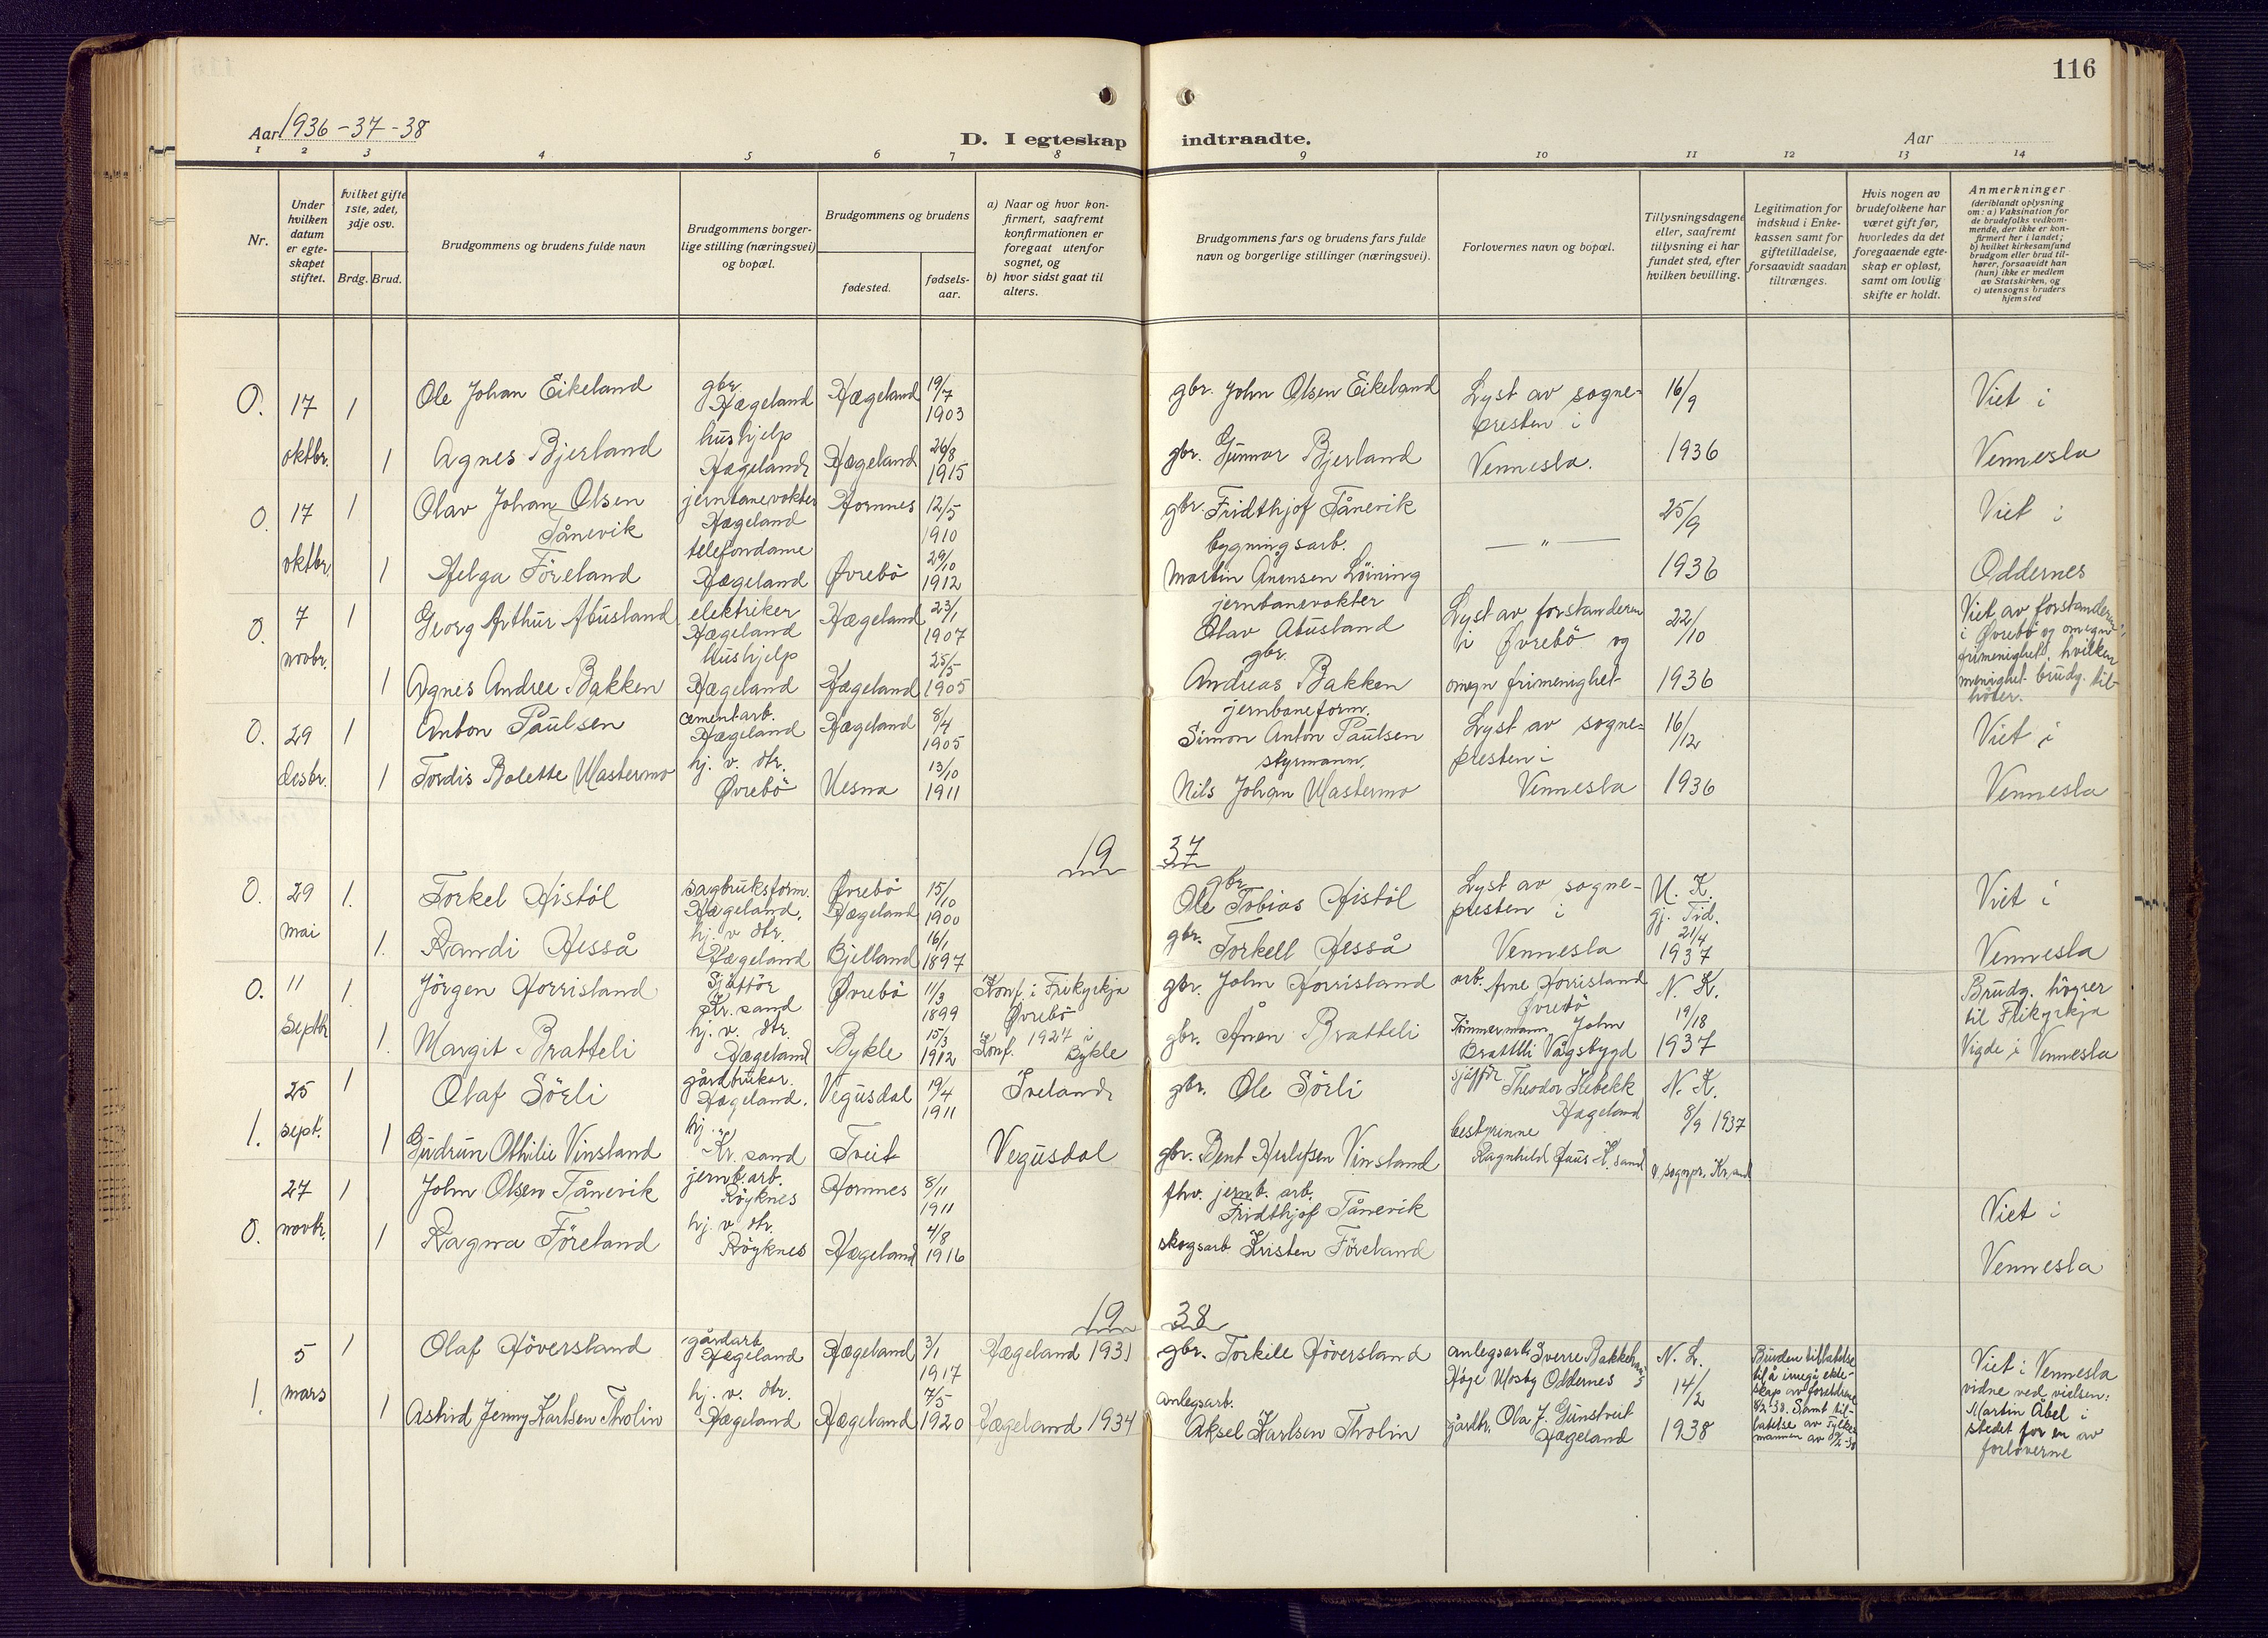 116
Aar 1936-37-38
D. I egteskap indtraadte.
Aar
1 2 3 4 5 6 7 8 9 10 11 12 13 14
Nr.
Under hvilken datum er egteskapet stiftet.
hvilket gifte 1ste, 2det, 3dje osv.
Brdg. Brud.
Brudgommens og brudens fulde navn
Brudgommens borgerlige stilling (næringsvei) og bopæl.
Brudgommens og brudens
fødested.
fødselsaar.
a) Naar og hvor konfirmert, saafremt konfirmationen er foregaat utenfor sognet, og
b) hvor sidst gaat til alters.
Brudgommens fars og brudens fars fulde navn og borgerlige stillinger (næringsvei).
Forlovernes navn og bopæl.
Tillysningsdagene eller, saafremt tillysning ei har fundet sted, efter hvilken bevilling.
Legitimation for indskud i Enkekassen samt for giftetilladelse, forsaavidt saadan tiltrænges.
Hvis nogen av brudefolkene har været gift før, hvorledes da det foregaaende egteskap er opløst, samt om lovlig skifte er holdt.
Anmerkninger (deriblandt oplysning om: a) Vaksination for de brudefolks vedkommende, der ikke er konfirmert her i landet; b) hvilket kirkesamfund brudgom eller brud tilhører, forsaavidt han (hun) ikke er medlem av Statskirken, og c) utensogns bruders hjemsted
O. 17 1 Ole Johan Eikeland gbr. Hægeland Hægeland 19/7 1903 gbr. John Olsen Eikeland Lyst av sognepresten i 16/9 Viet i
oktbr. 1 Agnes Bjerland hushjelp Hægeland Hægeland 26/8 1915 gbr. Gunnar Bjerland Vennesla. 1936 Vennesla
O. 17 1 Olav Johan Olsen Tånevik jernbanevokter Hægeland Hornnes 12/5 1910 gbr. Fridthjof Tånevik — " — 25/9 Viet i
oktbr. 1 Helga Föreland telefondame Hægeland Øvrebö 29/10 1912 bygningsarb. Martin Anensen Löining 1936 Oddernes
O. 7 1 Georg Arthur Abusland elektriker Hægeland Hægeland 23/1 1907 jernbanevokter Olav Abusland Lyst av forstanderen i Øvrebö og 22/10 Viet av forstanderen i Øvrebö og omegn frimenighet, hvilken menighet brudg. tilhörer.
novbr. 1 Agnes Andree Bakken hushjelp Hægeland Hægeland 25/5 1905 gbr. Andreas Bakken omegn frimenighet 1936
O. 29 1 Anton Paulsen cementarb. Hægeland Hægeland 8/4 1905 jernbaneform. Simon Anton Paulsen Lyst av sognepresten i 16/12 Viet i
desbr. 1 Tordis Bolette Mastermo hj. v. dtr. Øvrebö Nesna 13/10 1911 styrmann. Nils Johan Mastermo Vennesla 1936 Vennesla
19 37
O. 29 1. Torkel Histöl sagbruksform. Hægeland. Øvrebö Hægeland 15/10 1900 gbr. Ole Tobias Histöl Lyst av sognepresten i N. K. gj. Tid. Viet i
mai 1. Randi Hesså hj. v dtr. Hægeland Bjelland 16/1 1897 gbr. Torkell Hesså Vennesla 21/4 1937 Vennesla
O. 11 1. Jörgen Horrisland Sjåffør Kr.sand Øvrebö 11/3 1899 Konf. i Frikyrkja Øvrebö gbr. John Horrisland arb. Arne Horrisland Øvrebö N. K. Brudg. höyrer til Frikyrkja
septbr 1. Margit Bratteli hj. v. dtr. Hægeland Bykle 15/3 1912 Konf. 1927 i Bykle gbr. Ånen Bratteli Tömmermann John Brattlli Vågsbygd 19/18 1937 Vigde i Vennesla
25 1 Olaf Sörli gårdbruker. Hægeland. Vegusdal 19/4 1911 Iveland gbr. Ole Sörli sjåffør Theodor Hebekk Hægeland N. K.
1. sept. 1 Gudrun Othilie Vinsland hj. Kr.sand Tveit Vegusdal gbr. Bent Vinsland bestyrinne Ragnhild K. sand 8/9 1937 v. sognpr. Kr.sand
27 1 John Olsen Tånevik jernb. arb. Röyknes Hornnes 8/11 1911 fhv. jernb. arb. Fridthjof Tånevik Viet i
O. novbr. 1 Ragna Föreland hj. v. dtr. Röyknes Hægeland 4/8 1916 skogsarb. Kristen Föreland Vennesla
19 38
5 1 Olaf Höversland gårdarb. Hægeland Hægeland 3/1 1917 Hægeland 1931 gbr. Torkill Höversland anlegsarb. Sverre Bakken Höge Mosby Oddernes N. L. 14/2 Bruden tillatelse til å inngå ekteskap av foreldrene 8/2-38. Samt tillatelse av Fylkesmannen av Viet i Vennesla vidne ved vielsen: Martin Abel i stedet for en av forloverne
1. mars 1 Astrid Jenny Karlsen Tholin hj. v. dtr. Hægeland Hægeland 7/5 1920 Hægeland 1934 anlegsarb. Aksel Karlsen Tholin gårdbr. Ola J. Gunstveit Hægeland 1938